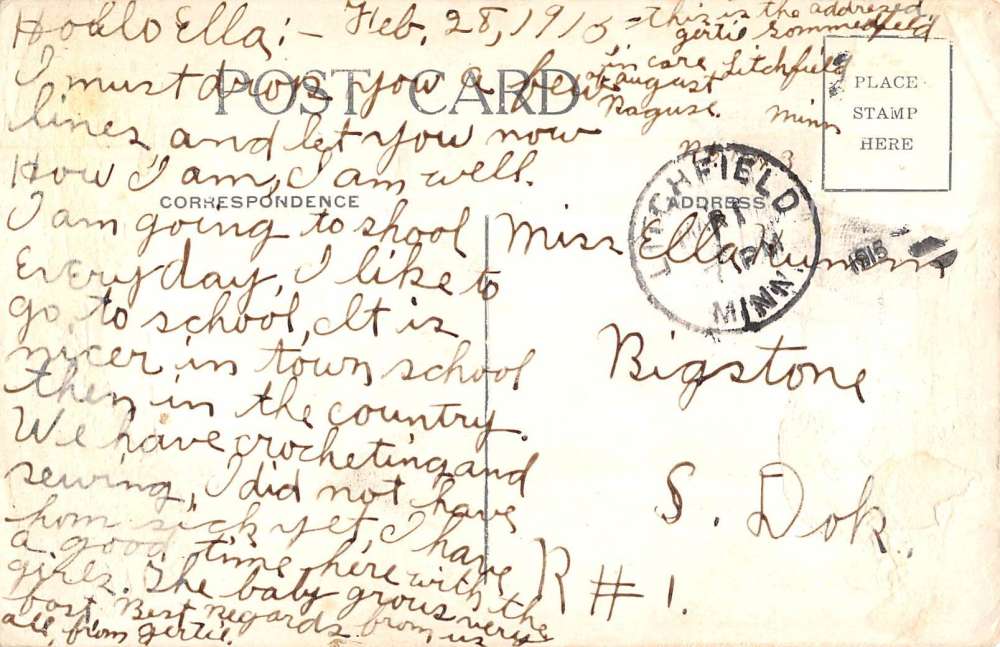 Hollo Ella:- Feb. 28, 1915
this is the addresed
gertie Sommerfield
in care Litchfield
of august
Raguse. Minn
POST CARD
PLACE
STAMP
HERE
I must drop you a few
lines and let you now
How I am, I am well.
CORRESPONDENCE
ADDRESS
I am going to shool
Every day, I like to
go, to school, It is
nicer in town school
then in the country.
We have crocheting and
sewing, I did not have
hom sick yet, I have
a good time here with the
girls. The baby grows very
fast, Best Regards from us
all, from gertie.
LITCHFIELD
PM
MINN.
1915
Miss Ella
Bigstone
S. Dok.
R # 1.